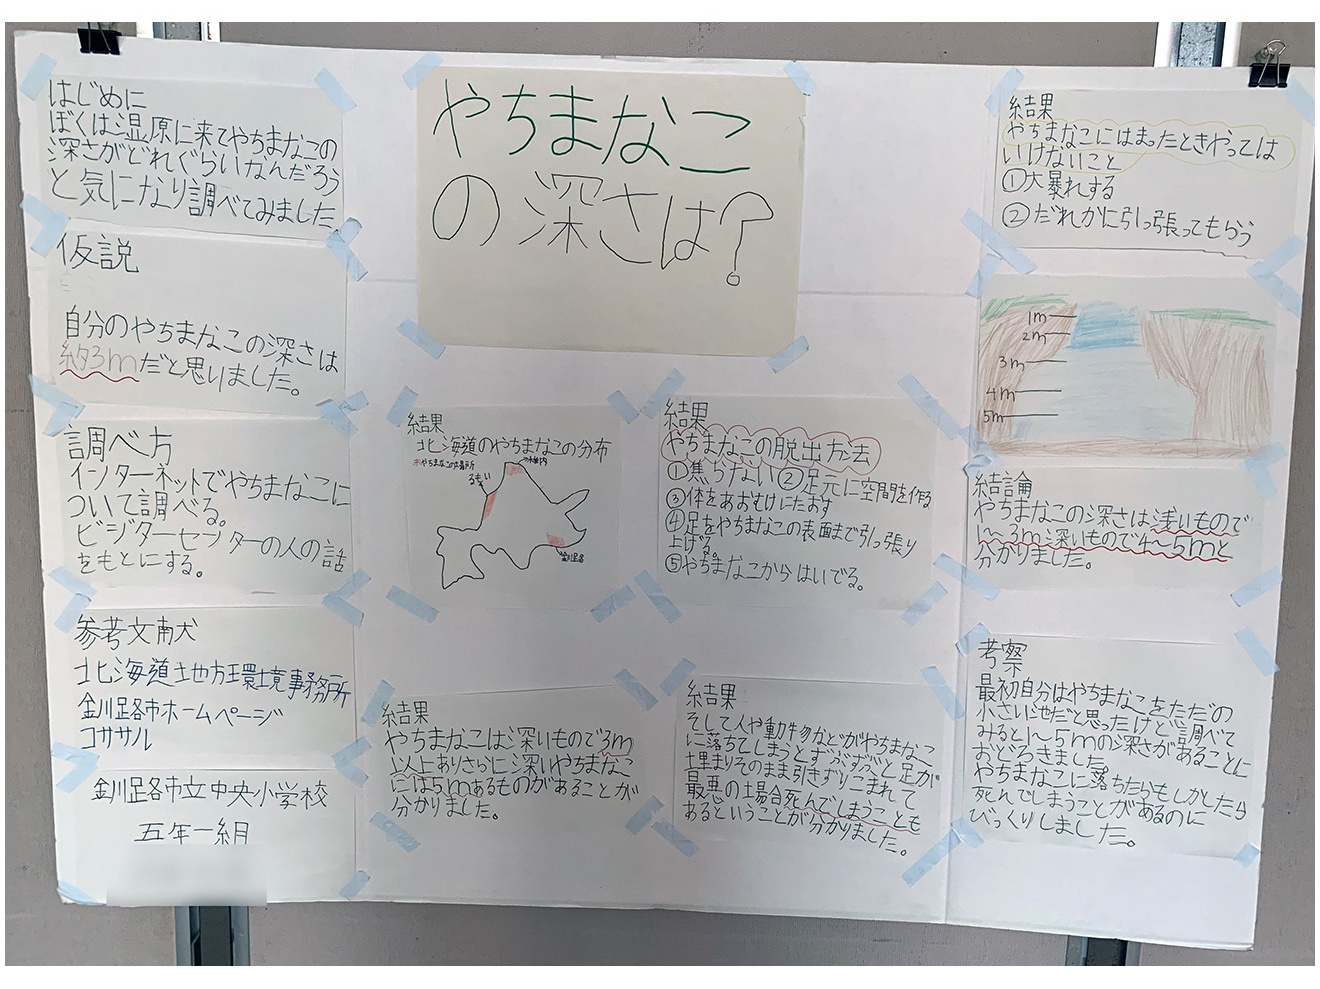 やちまなこ
の深さは?
はじめに
ぼくは湿原に来てやちまなこの
深さがどれぐらいなんだろう
と気になり調べてみました。
仮説
自分のやちまなこの深さは
約3mだと思いました。
調べ方
インターネットでやちまなこに
ついて調べる。
ビジターセンターの人の話
をもとにする。
参考文献
北海道地方環境事務所
釧路市ホームページ
コササル
釧路市立中央小学校
五年一組
結果
北海道のやちまなこの分布
※やちまなこの場所
稚内
るもい
釧路
結果
やちまなこの脱出方法
①焦らない②足元に空間を作る
③体をあおむけにたおす
④足をやちまなこの表面まで引っ張り
上げる。
⑤やちまなこからはいでる。
結果
やちまなこは深いもので3m
以上ありさらに深いやちまなこ
には5mあるものがあることが
分かりました。
結果
そして人や動物などがやちまなこ
に落ちてしまうとずぶずぶと足が
埋まりそのまま引きずりこまれて
最悪の場合死んでしまうことも
あるということが分かりました。
結果
やちまなこにはまったときやっては
いけないこと
①大暴れする
②だれかに引っ張ってもらう
1m
2m
3m
4m
5m
結論
やちまなこの深さは浅いもので
1～3m深いもので4～5mと
分かりました。
考察
最初自分はやちまなこをただの
小さい池だと思ったけど調べて
みると1～5mの深さがあることに
おどろきました。
やちまなこに落ちたらもしかしたら
死んでしまうことがあるのに
びっくりしました。